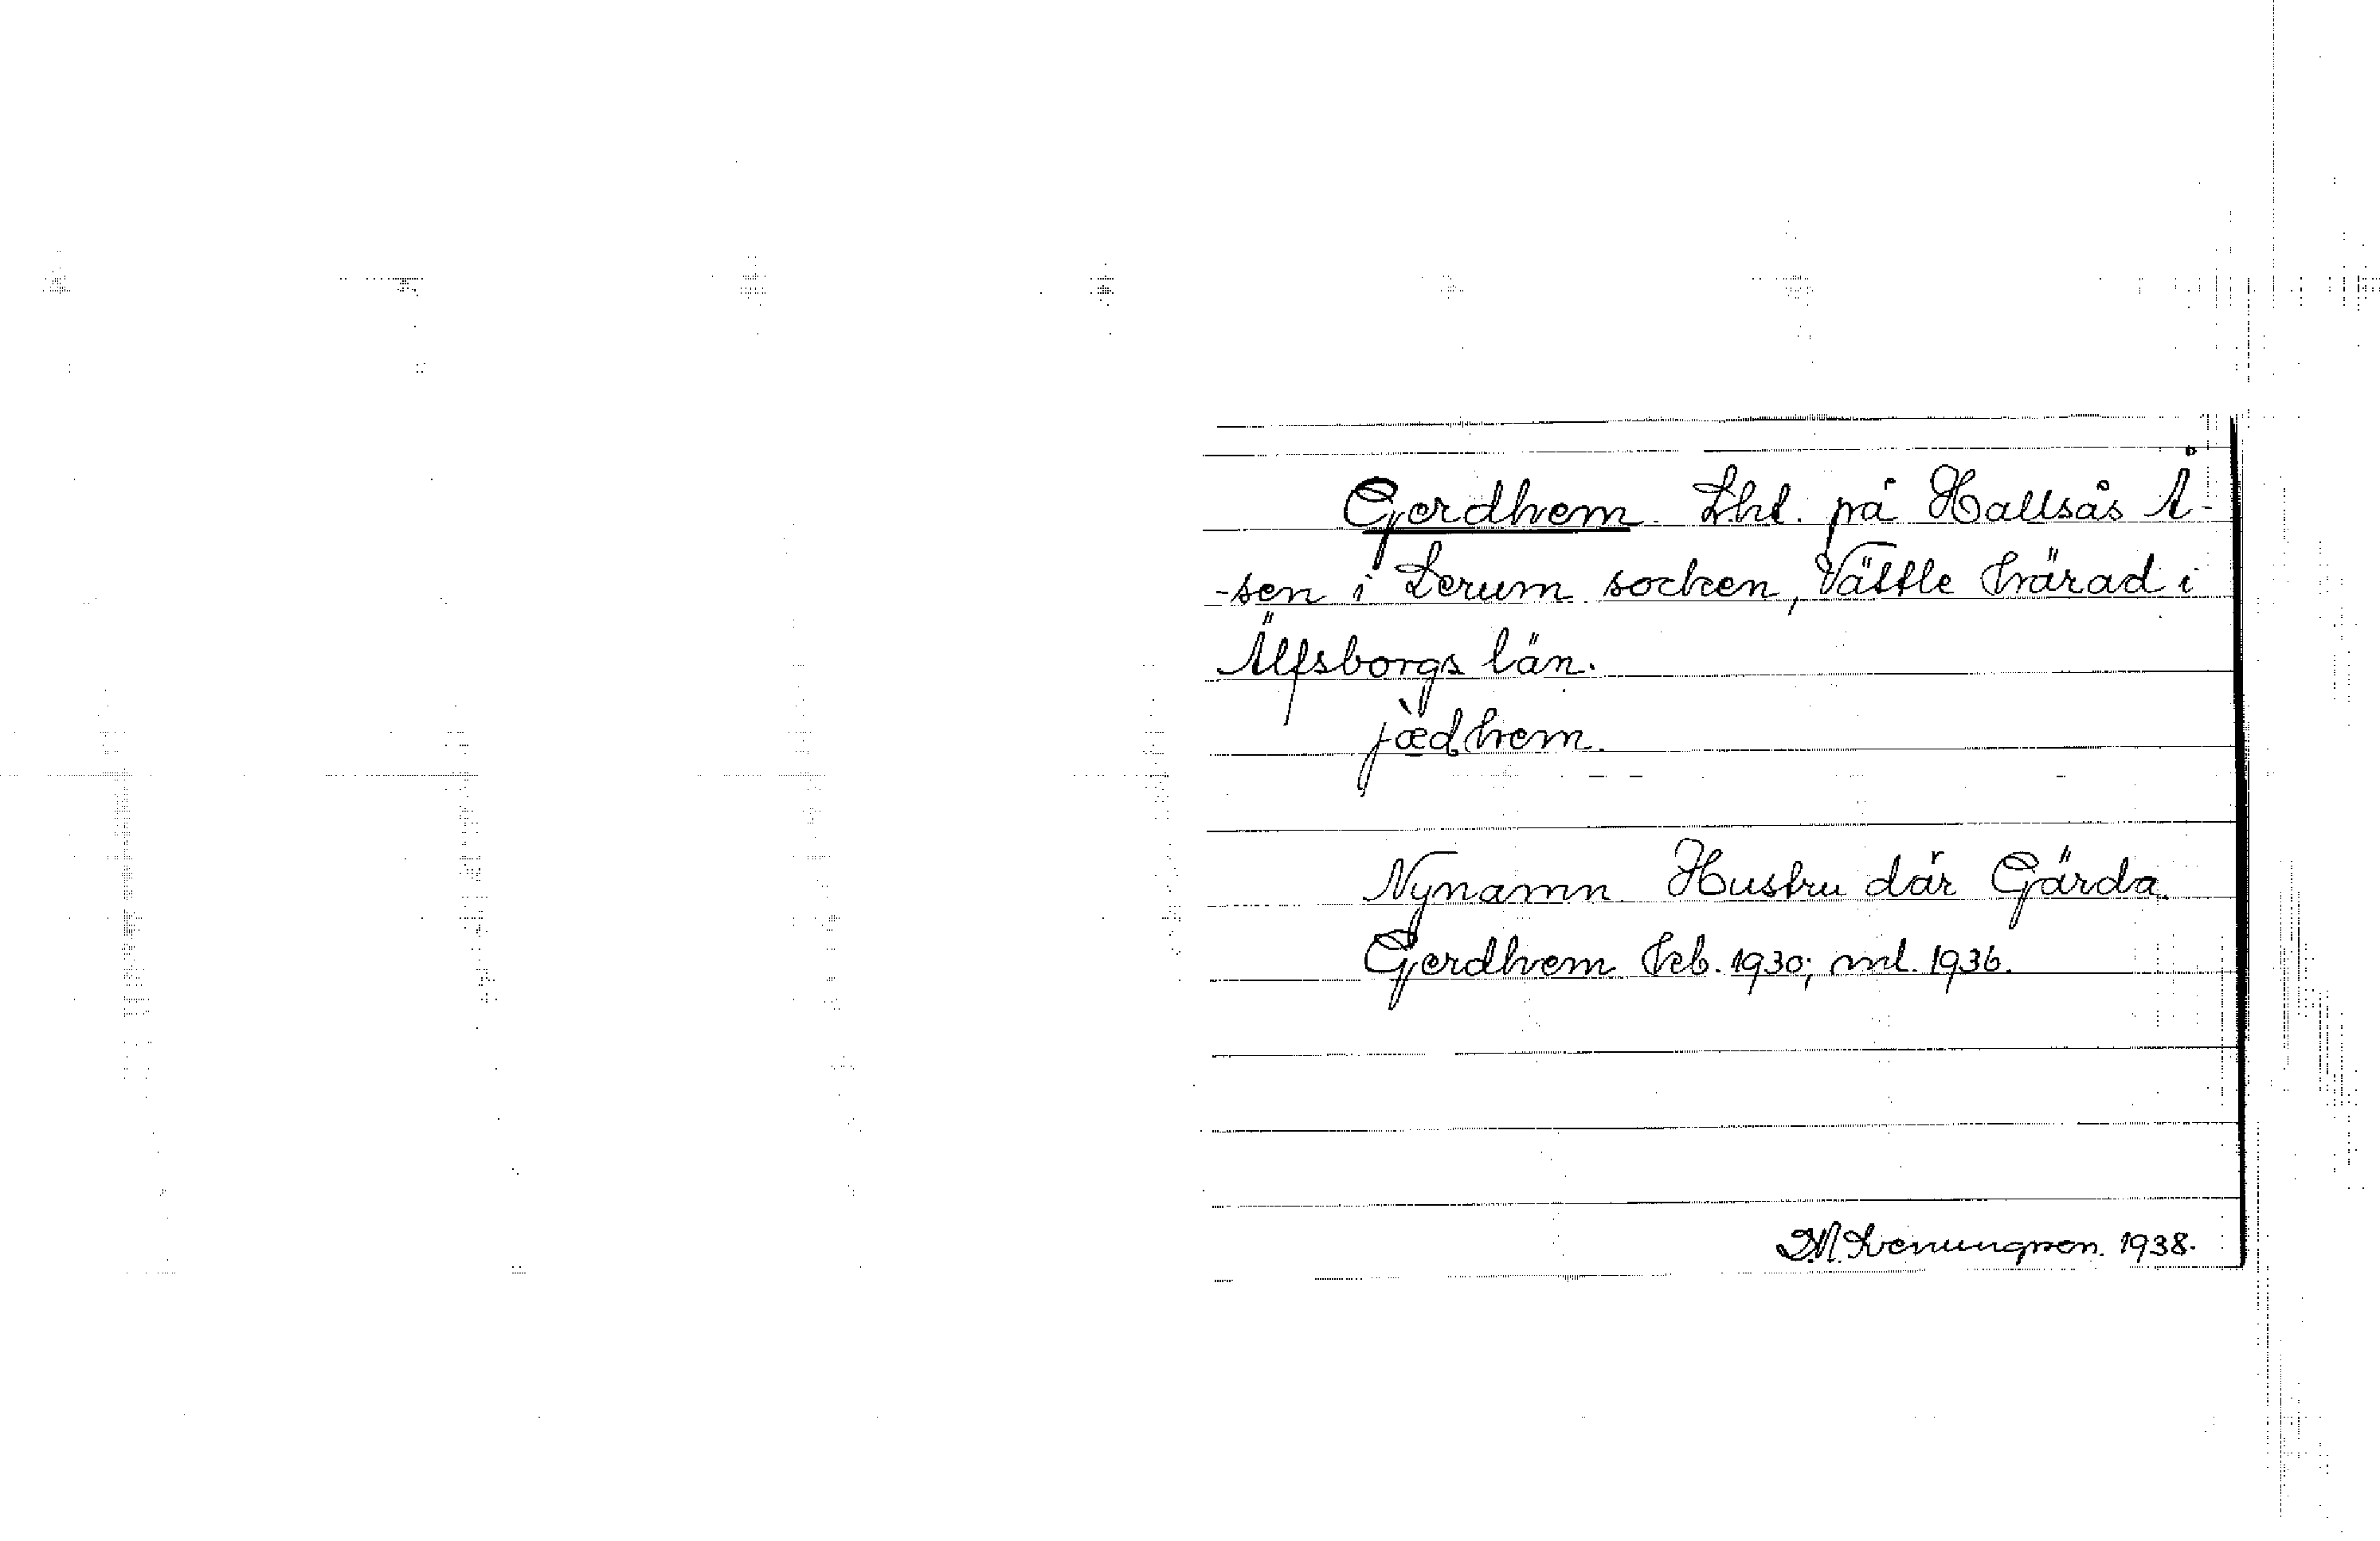 Gerdhem. Lht. på Hallsås Å-
-sen i Lerum socken, Vättle härad i
Älfsborgs län.
jæ̀dhem.
Nynamn. Hustru där Gärda.
Gerdhem hcb. 1930; ml. 1936.
1938.